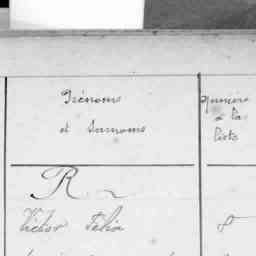 Prénoms
et Surnoms
Numéro
à la
liste
R
Victor Félix 8